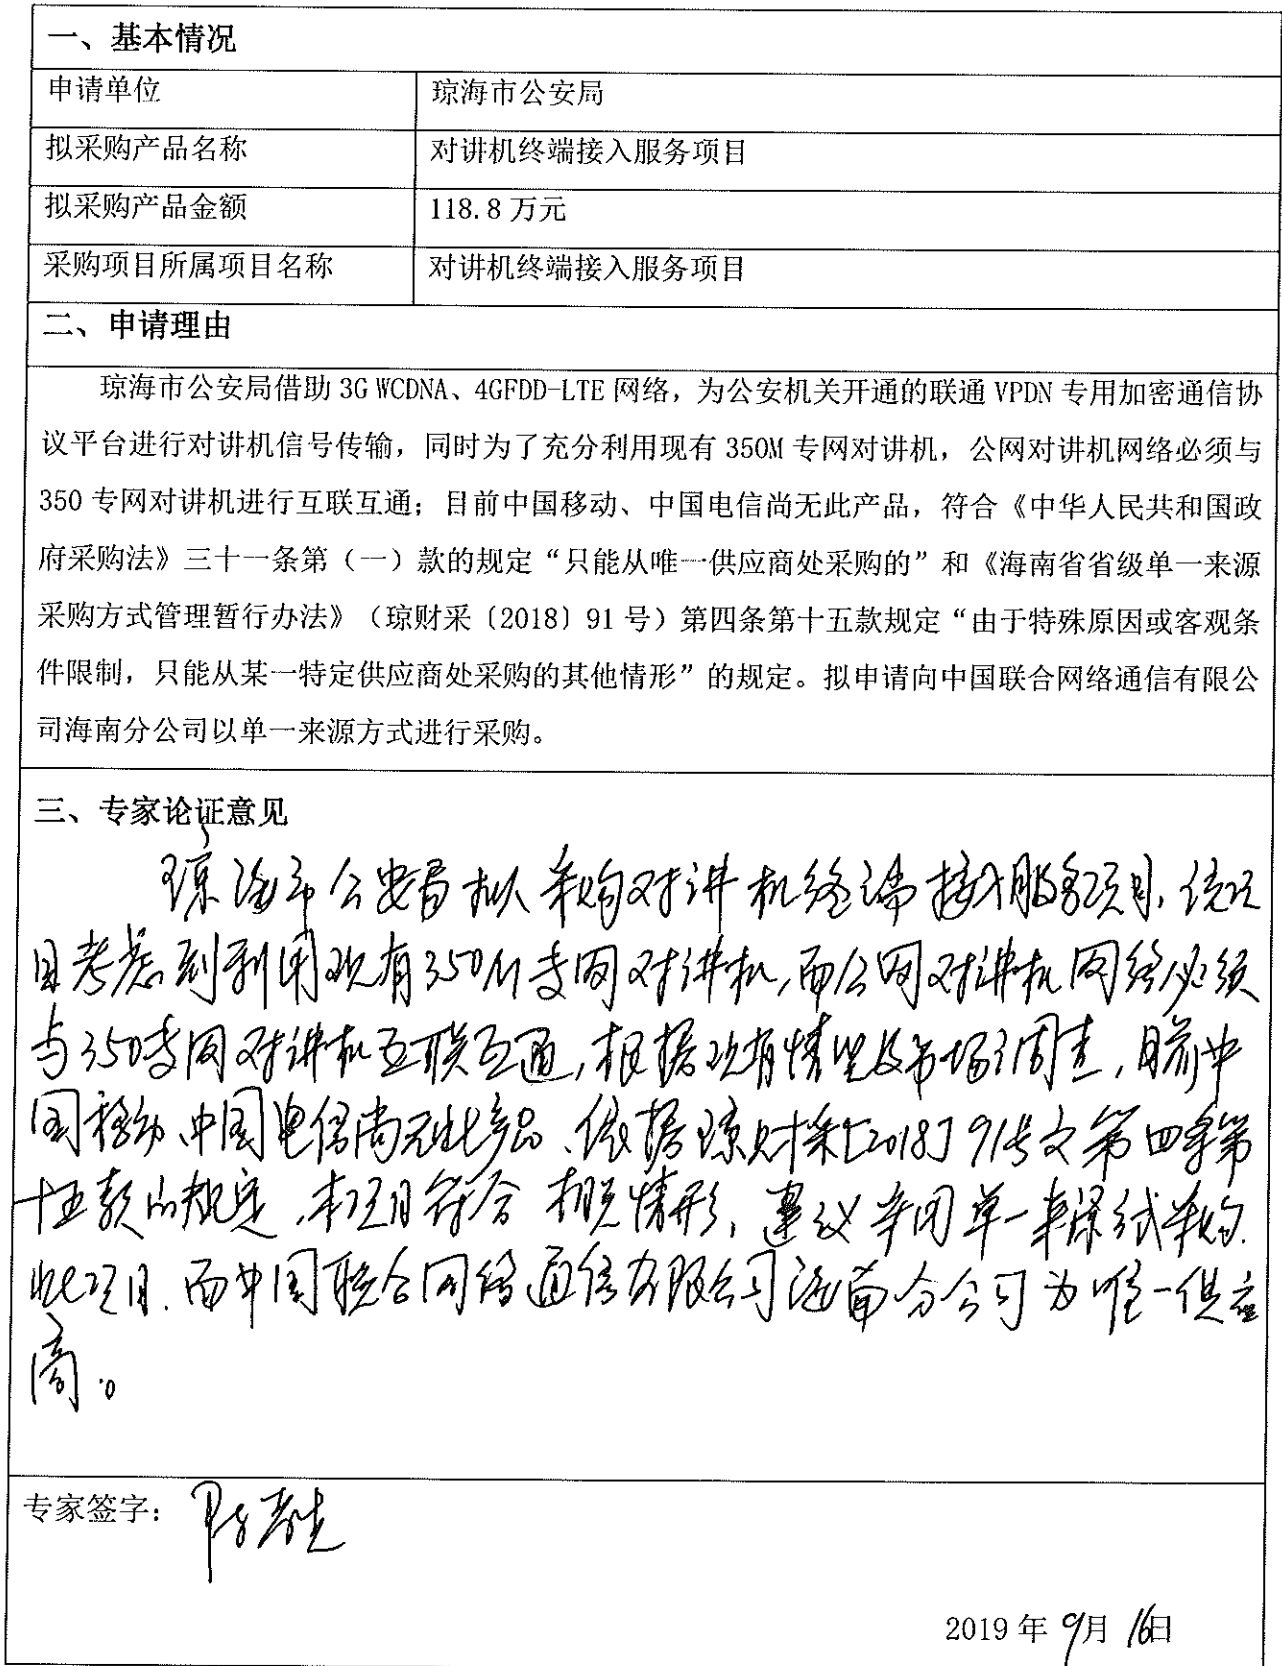 一、基本情况
申请单位 琼海市公安局
拟采购产品名称 对讲机终端接入服务项目
拟采购产品金额 118.8 万元
采购项目所属项目名称 对讲机终端接入服务项目
二、申请理由
琼海市公安局借助 3G WCDNA、4GFDD-LTE 网络，为公安机关开通的联通 VPDN 专用加密通信协
议平台进行对讲机信号传输，同时为了充分利用现有 350M 专网对讲机，公网对讲机网络必须与
350 专网对讲机进行互联互通；目前中国移动、中国电信尚无此产品，符合《中华人民共和国政
府采购法》三十一条第（一）款的规定“只能从唯一供应商处采购的”和《海南省省级单一来源
采购方式管理暂行办法》（琼财采〔2018〕91 号）第四条第十五款规定“由于特殊原因或客观条
件限制，只能从某一特定供应商处采购的其他情形”的规定。拟申请向中国联合网络通信有限公
司海南分公司以单一来源方式进行采购。
三、专家论证意见
琼海市公安局拟采购对讲机终端接入服务项目，该项
目考虑到利用现有350M专网对讲机，而公网对讲机网络必须
与350专网对讲机互联互通，根据现有情况及市场调查，目前中
国移动、中国电信尚无此产品、依据琼财采〔2018〕91号文第四条第
十五款的规定，本项目符合相关情形，建议采用单一来源式采购
此项目，而中国联合网络通信有限公司海南分公司为唯一供应
商。
专家签字：
2019 年 9月 16日